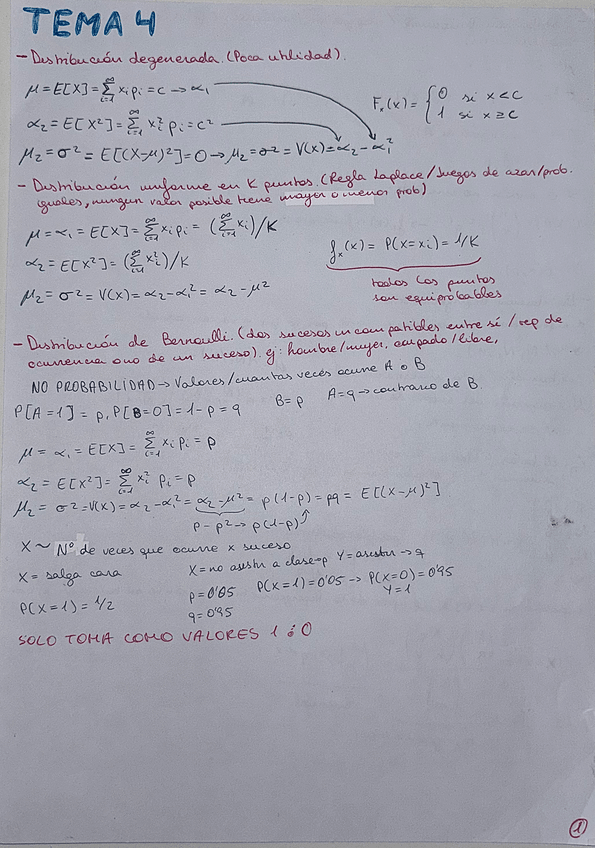 TEMA 4
- Distribución degenerada. (Poca utilidad).
μ = E[X] = ∑_{i=1}^{∞} x_i p_i = c → α_1
F_x(x) = { 0 si x < c
1 si x ≥ c
α_2 = E[X²] = ∑_{i=1}^{∞} x_i² p_i = c²
μ_2 = σ² = E[(X-μ)²] = 0 → μ_2 = σ² = V(X) = α_2 - α_1²
- Distribución uniforme en K puntos. (Regla Laplace/Juegos de azar/prob.
iguales, ningun valor posible tiene mayor o menor prob)
μ = α_1 = E[X] = ∑_{i=1}^{∞} x_i p_i = (∑_{i=1}^{∞} x_i)/K
f_x(x) = P(X = x_i) = 1/K
α_2 = E[X²] = (∑_{i=1}^{∞} x_i²)/K
todos los puntos
son equiprobables
μ_2 = σ² = V(X) = α_2 - α_1² = α_2 - μ²
- Distribución de Bernoulli. (dos sucesos incompatibles entre sí / rep de
ocurrencia o no de un suceso). ej: hombre/mujer, ocupado/libre,
NO PROBABILIDAD → Valores/cuantas veces ocurre A o B
P[A=1] = p, P[B=0] = 1-p = q
B = p
A = q → contrario de B
μ = α_1 = E[X] = ∑_{i=1}^{∞} x_i p_i = p
α_2 = E[X²] = ∑_{i=1}^{∞} x_i² p_i = p
μ_2 = σ² = V(X) = α_2 - α_1² = α_2 - μ² = p(1-p) = pq = E[(X-μ)²]
p - p² → p(1-p)
X ~ Nº de veces que ocurre x suceso
X = salga cara
X = no asistir a clase → p Y = asistir → q
P(X=1) = 1/2
p = 0'05
P(X=1) = 0'05 → P(X=0) = 0'95
Y=1
q = 0'95
SOLO TOMA COMO VALORES 1 ó 0
1